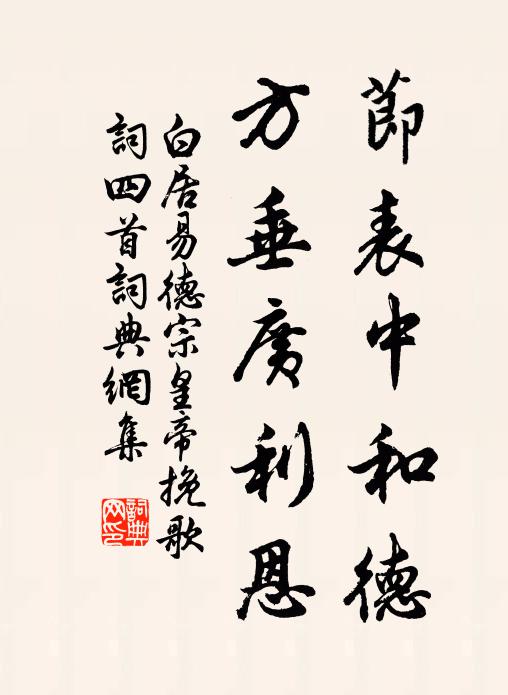 節表中和德
方垂廣利恩
白居易德宗皇帝挽歌
詞四首詞典網集
詞典
网印